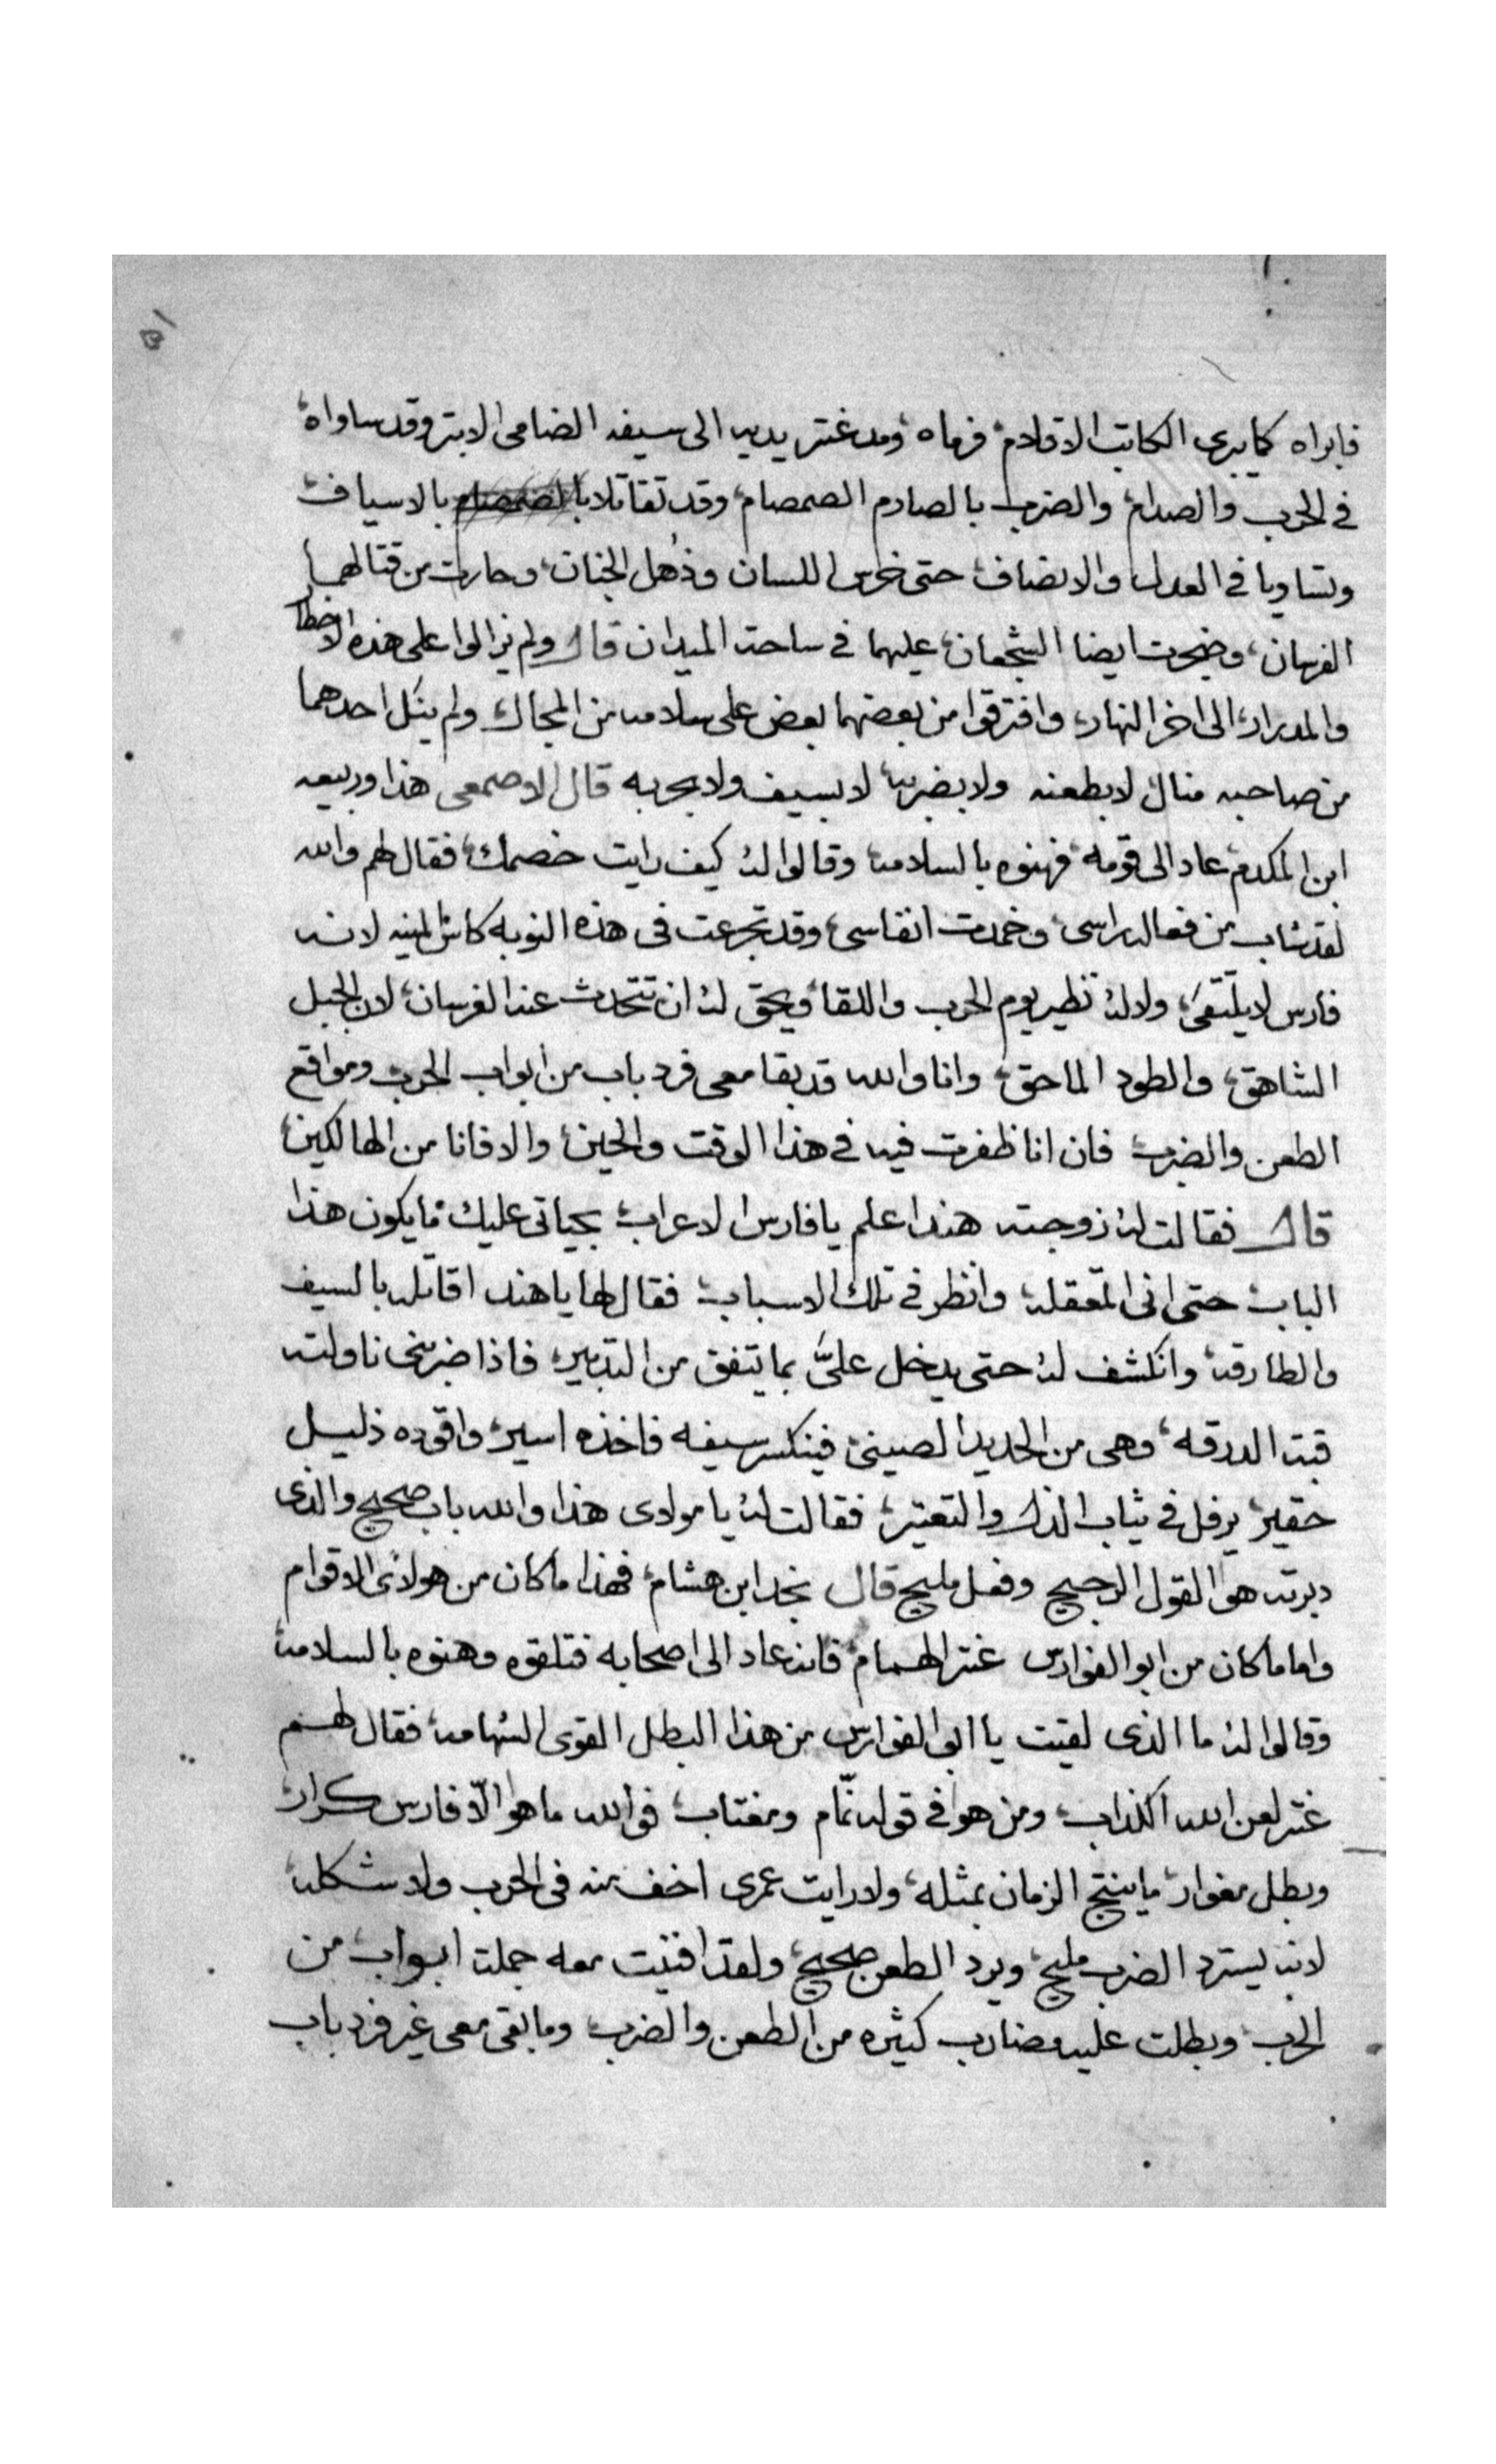 فابراه كما يبرى الكاتب الاقلام فرماه ومد عنتر يديه الى سيفه الضامى الابتر وقد ساواه
فى الحرب والصدام والضرب بالصارم الصمصام وقد تقاتلا بالاسياف
وتساويا فى العدل والانصاف حتى خرس اللسان وذهل الجنان وحارت من قتالهما
الفرسان وضجت ايضا الشجعان عليهما فى ساحة الميدان قال ولم يزالوا على هذه الاخطار
والمدرار الى اخر النهار وافترقوا من بعضهما بعض على سلامه من المجال ولم ينل احدهما
من صاحبه منال لا بطعنه ولا بضربة لا بسيف ولا بحربه قال الاصمعى هذا وربيعه
ابن المكدم عاد الى قومه فهنوه بالسلامة وقالوا له كيف رايت خصمك فقال لهم والله
لقد شاب من فعاله راسى وخمدت انفاسى وقد تجرعت فى هذه النوبه كاس المنيه لانه
فارس لا يلتقى ولا له نظير يوم الحرب واللقا ويحق له ان تتحدث عنه الفرسان لانه الجبل
الشاهق والطود الماحق وانا والله قد بقا معى فرد باب من ابواب الحرب ومواقع
الطعن والضرب فان انا ظفرت فيه فى هذا الوقت والحين والا فانا من الهالكين
قال فقالت له زوجته هند اعلم يا فارس الاعراب بحياتى عليك ما يكون هذا
الباب حتى انى اتعقله وانظر فى تلك الاسباب فقال لها يا هند اقاتله بالسيف
والطارقة وانكشف له حتى يدخل علىَّ بما يتفق من التدبير فاذا ضربنى ناولته
قبة الدرقه وهى من الحديد الصينى فينكسر سيفه فاخذه اسير واقوده ذليل
حقير يرفل فى ثياب الذل والتعتير فقالت له يا مولاى هذا والله باب صحيح والذى
دبرته هو القول الرجيح وفعل مليح قال نجد ابن هشام فهذا ما كان من هولاى الاقوام
واما ما كان من ابو الفوارس عنتر الهمام فانه عاد الى اصحابه فتلقوه وهنوه بالسلامة
وقالوا له ما الذى لقيت يا ابى الفوارس من هذا البطل القوى الشهامة فقال لهم
عنتر لعن الله الكذاب ومن هو فى قوله نمّام ومغتاب فوالله ما هو الّا فارس كرار
وبطل مغوار ما ينتج الزمان بمثله ولا رايت عمرى اخف منه فى الحرب ولا شكله
لانه يسترد الضرب مليح ويرد الطعن صحيح ولقد افنيت معه جملة ابواب من
الحرب وبطلت عليه مضارب كثيره من الطعن والضرب وما بقى معى غير فرد باب